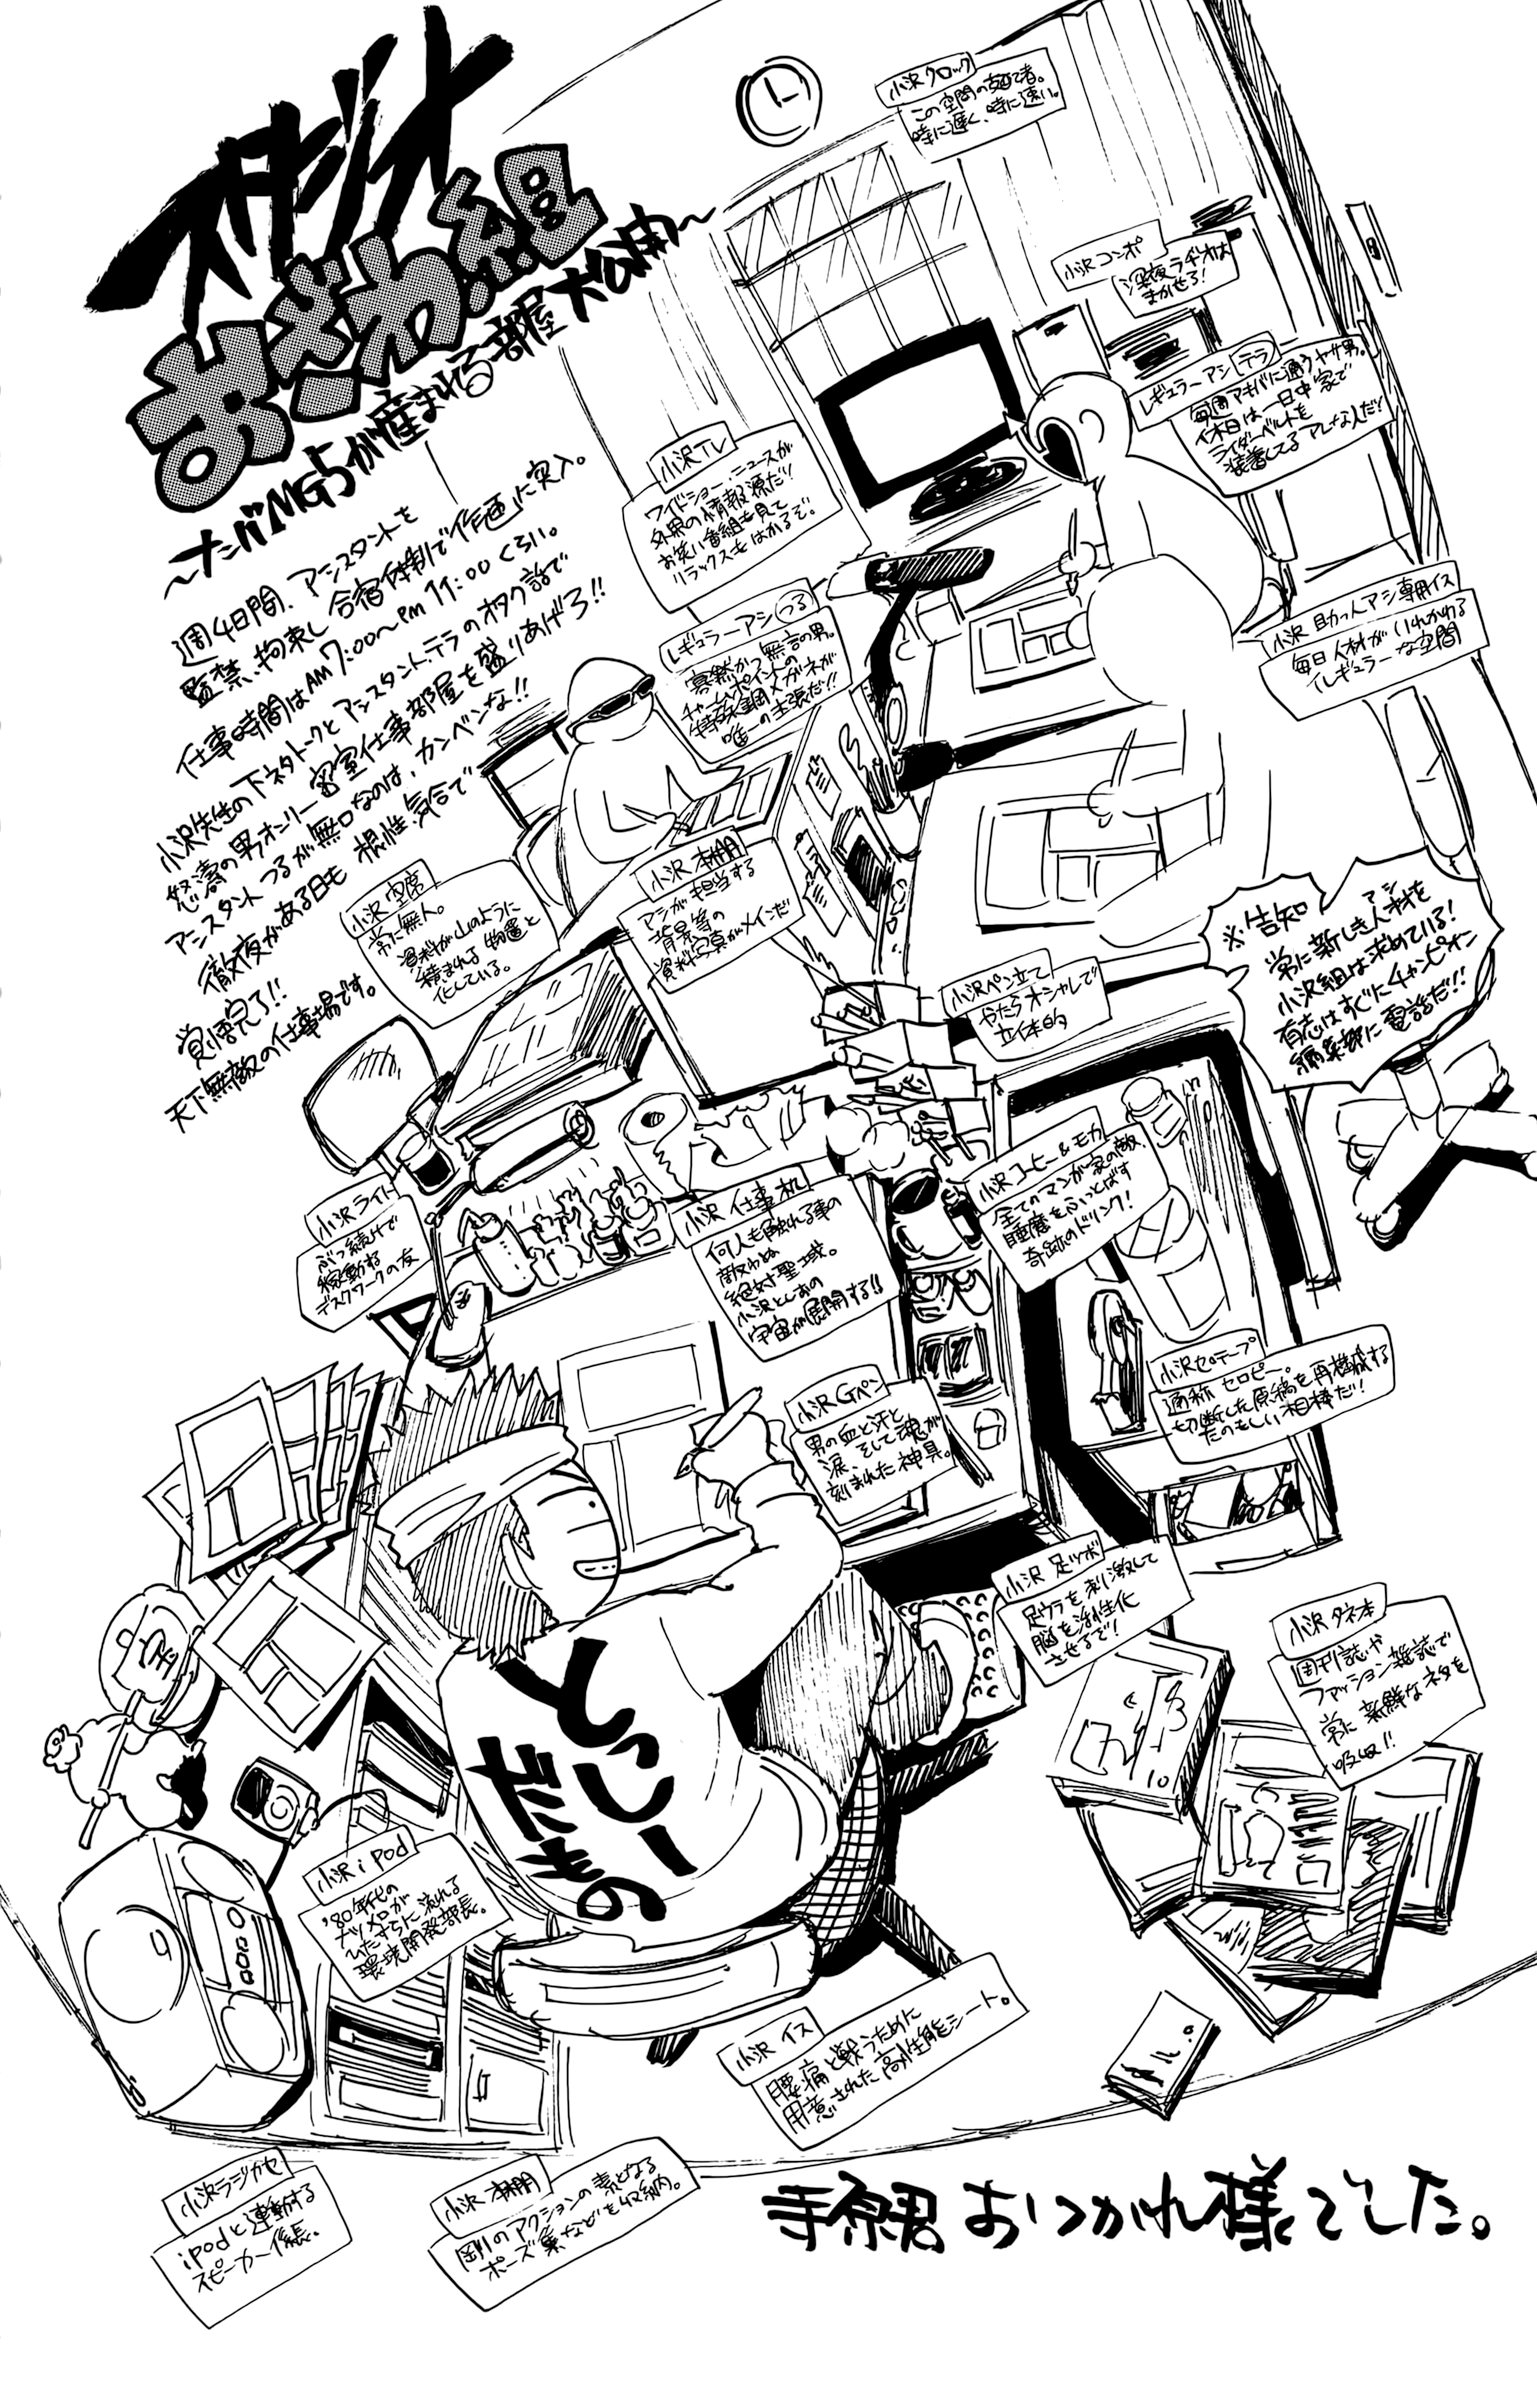 スタジオ
おざわ組
〜ナンバMG5が産まれる部屋大公開〜
週4日間、アシスタントを
監禁、拘束し合宿体制で「作画」に突入。
仕事時間はAM7:00〜PM11:00くらい。
小沢先生の下ネタトークとアシスタント、テラのオタク話で
怒濤の男オンリー密室仕事部屋を盛りあげろ!!
アシスタントつるが無口なのは、カンベンな!!
徹夜がある日も根性、気合で
覚悟完了!!
天下無敵の仕事場です。
小沢クロック
この空間の支配者。
時に遅く、時に速い。
小沢コンポ
深夜ラヂオは
まかせろ!
レギュラーアシ テラ
毎週アキバに通うヤサ男。
休日は一日中家で
ライダーベルトを
装着してるアレな人だ!
小沢TV
ワイドショー、ニュースが
外界の情報源だ!
お笑い番組も見て
リラックスもはかるぞ。
レギュラーアシ つる
寡黙かつ無言の男。
チャームポイントの
特殊鋼メガネが
唯一の主張だ!!
小沢 助っ人アシ専用イス
毎日人材がいれかわる
イレギュラーな空間
小沢 空席
常に無人。
資料が山のように
積まれ物置と
化している。
小沢 本棚
アシが担当する
背景等の
資料写真がメインだ
※告知
常に新しき人材を
アシ
小沢組は求めている!
有志はすぐにチャンピオン
編集部に電話だ!!
小沢ペン立て
やたらオシャレで
立体的
小沢ライト
ぶっ続けで
稼動する
デスクワークの友
小沢 仕事机
何人も触れる事の
敵わぬ
絶対聖域。
小沢としおの
宇宙が展開する!!
小沢コーヒー&モカ
全てのマンガ家の敵、
睡魔をふっとばす
奇跡のドリンク!
小沢Gペン
男の血と汗と
涙、そして魂が
刻まれた神具。
小沢セロテープ
通称セロピー。
切断した原稿を再構成する
たのもしい相棒だ!
小沢 足ツボ
足ウラを刺激して
脳を活性化
させるぞ!
小沢 タネ本
週刊誌や
ファッション雑誌で
常に新鮮なネタを
吸収!!
とっしー
だもの
宝
小沢iPod
'80年代の
ナツメロが
ひたすらに流れる
環境開発部長。
小沢 イス
腰痛と戦うために
用意された高性能シート。
小沢ラジカセ
iPodと連動する
スピーカー係長。
小沢 本棚
剛のアクションの素となる
ポーズ集などを収納。
寺原君 おつかれ様でした。